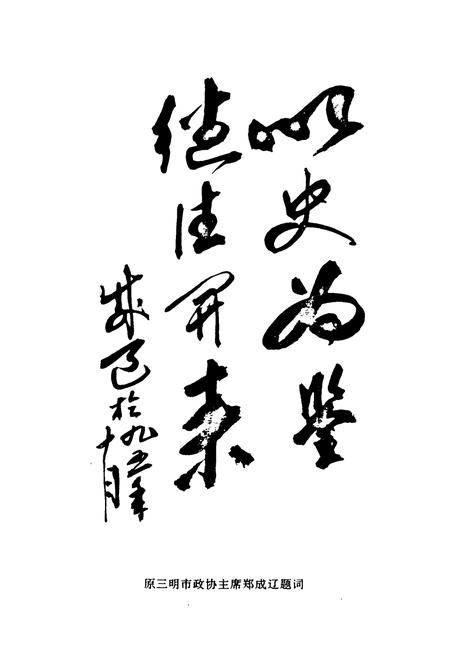 以史为鉴
继往开来
成辽於九五年
十月
原三明市政协主席郑成辽题词